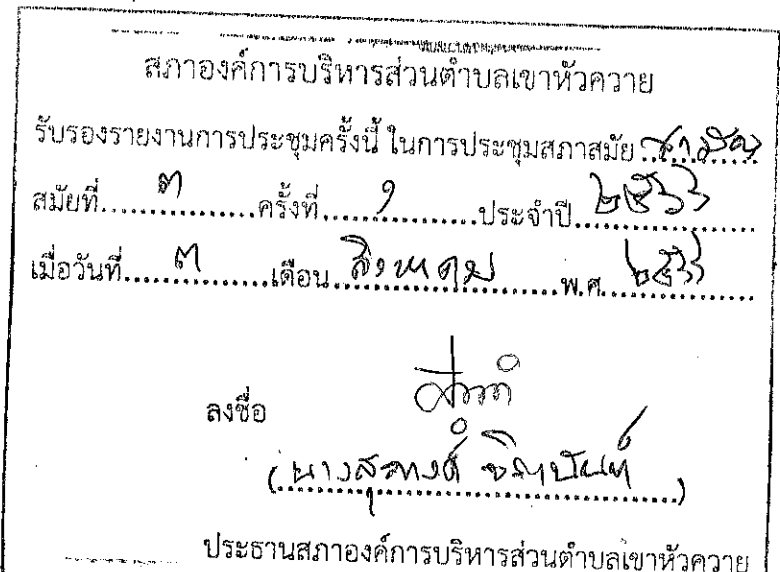 สภาองค์การบริหารส่วนตำบลเขาหัวควาย
รับรองรายงานการประชุมครั้งนี้ ในการประชุมสภาสมัย สามัญ
สมัยที่ ๓ ครั้งที่ ๑ ประจำปี ๒๕๖๓
เมื่อวันที่ ๓ เดือน สิงหาคม พ.ศ. ๒๕๖๓
ลงชื่อ
(นางสุภางค์)
ประธานสภาองค์การบริหารส่วนตำบลเขาหัวควาย